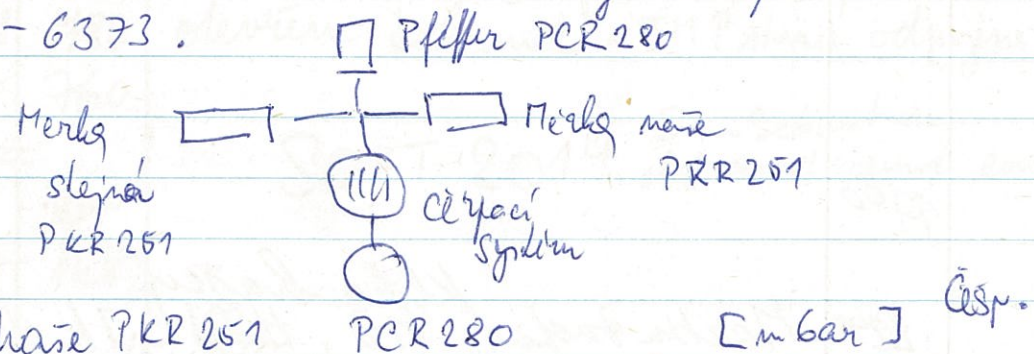 - 6373.
Pfeiffer PCR 280
Měrka
stejná
PKR 251
Měrka naše
PKR 251
Čerpací
systém
naše PKR 251 PCR 280 [mbar] Češp.